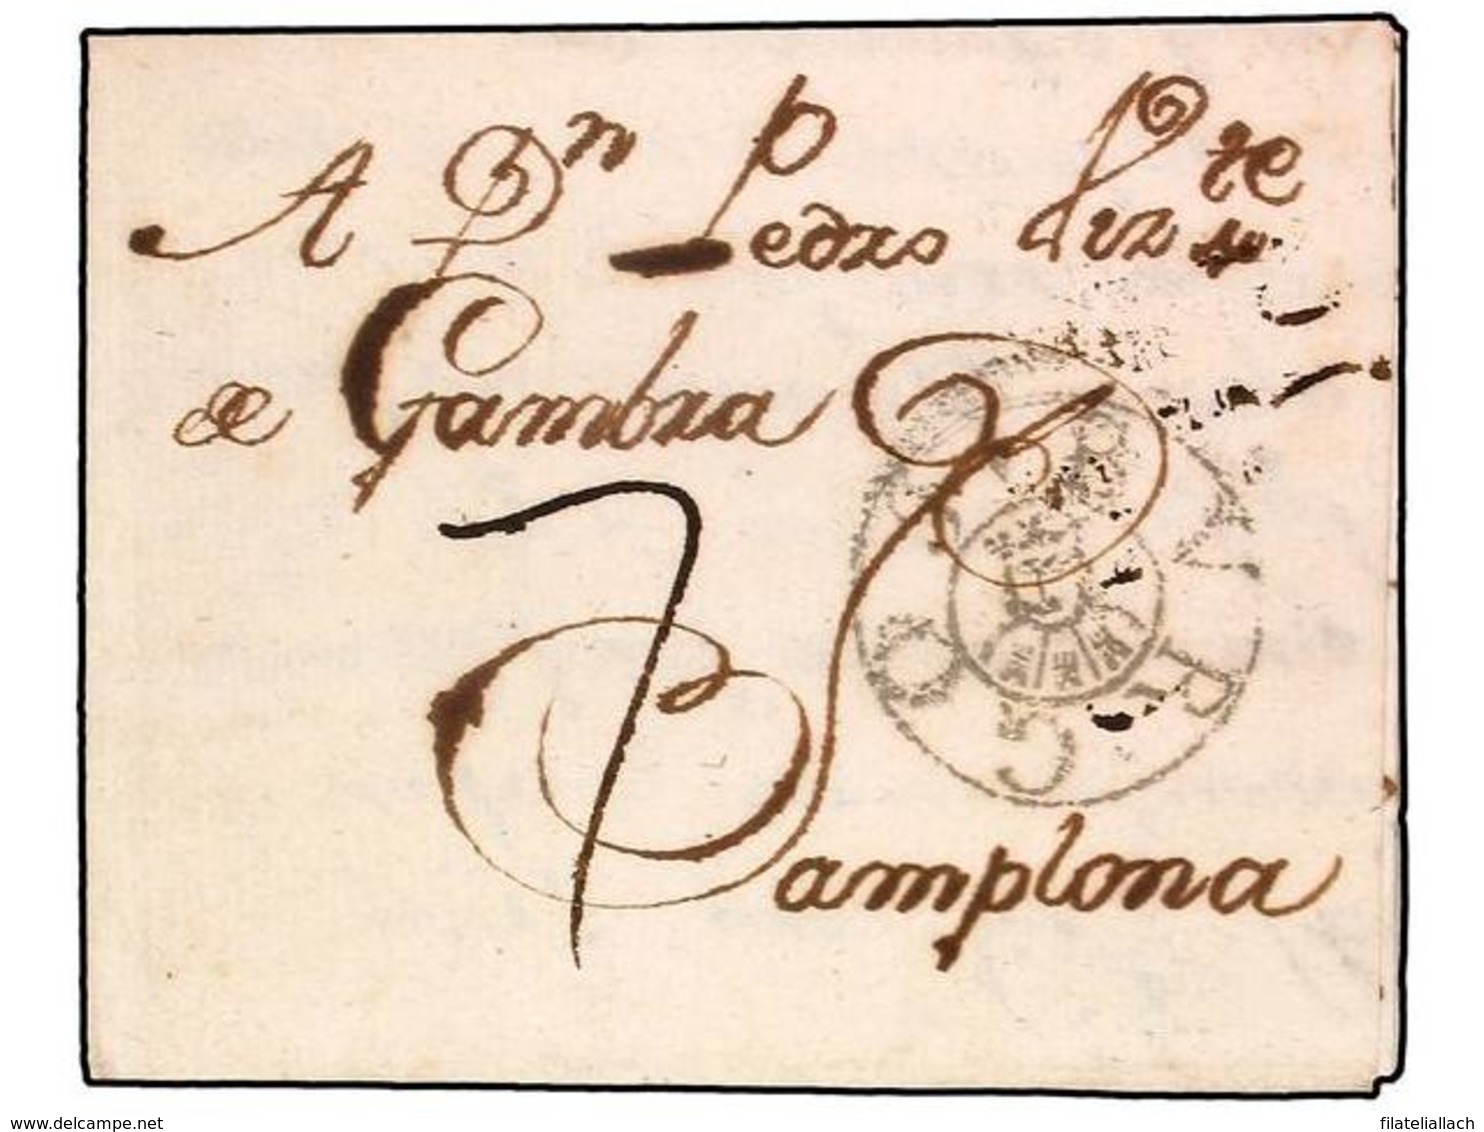 A Dn Pedro Vizte
de Gambra
7
Pamplona
delcampe.net
filateliallach